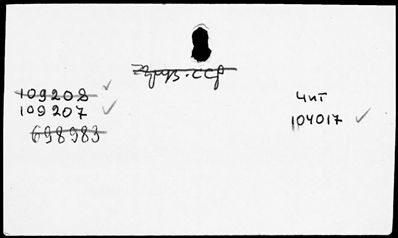 Груз.ССР
109208
109207
698983
Чит
104017